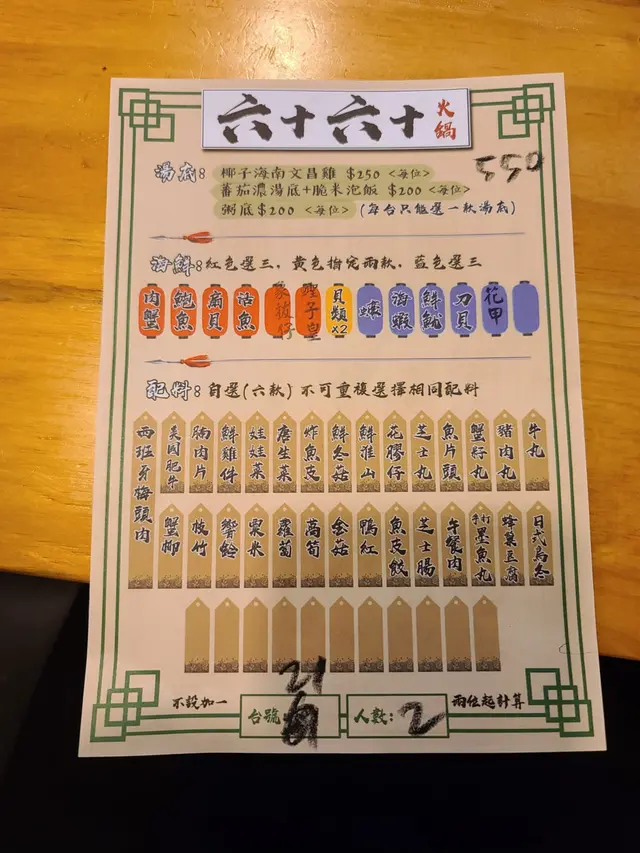 六十六十 火鍋
550
湯底: 椰子海南文昌雞 $250 <每位>
蕃茄濃湯底+脆米泡飯 $200 <每位>
粥底$200 <每位> (每台只能選一款湯底)
海鮮: 紅色選三, 黃色指定兩款, 藍色選三
肉蟹 鮑魚 扇貝 活魚 瀨子皇 貝類x2 蟶 海蝦 鮮魷 刀貝 花甲
配料: 自選(六款) 不可重複選擇相同配料
西班牙梅頭肉 美國肥牛 腩肉片 鮮雞件 娃娃菜 唐生菜 炸魚皮 鮮冬菇 鮮淮山 花膠仔 芝士丸 魚片頭 蟹籽丸 豬肉丸 牛丸
蟹柳 枝竹 響鈴 粟米 蘿蔔 萵筍 金菇 鴨紅 魚皮餃 芝士腸 午餐肉 手打墨魚丸 蜂巢豆腐 日式烏冬
21
不設加一 台號 人數: 2 兩位起計算